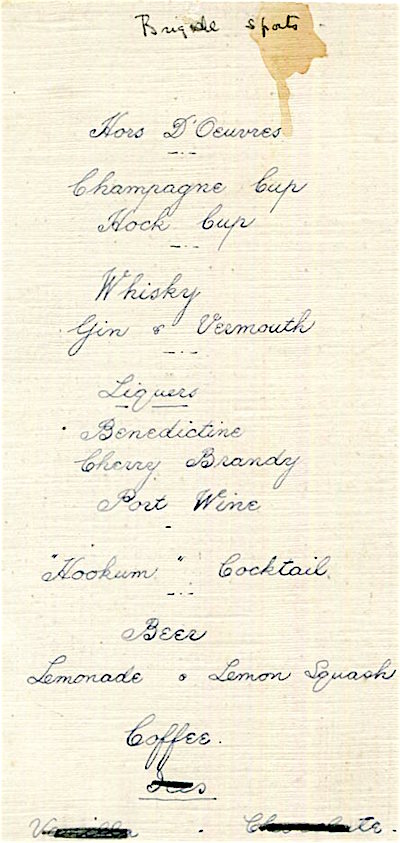 Brigade Sports
Hors D'Oeuvres
Champagne Cup
Hock Cup
Whisky
Gin & Vermouth
Liquers
Benedictine
Cherry Brandy
Port Wine
"Hookum" Cocktail.
Beer
Lemonade & Lemon Squash
Coffee.
Ices
Vanilla . Chocolate.